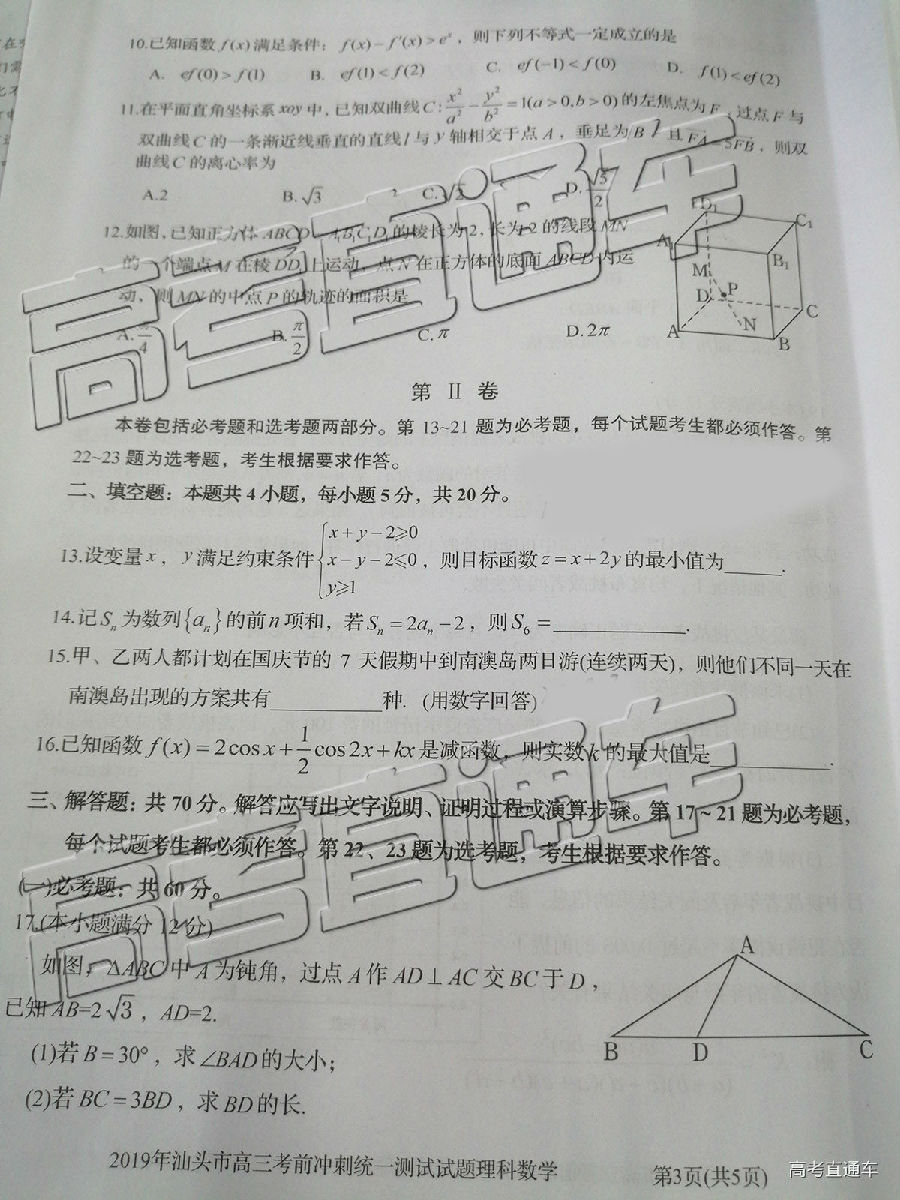 10.已知函数 f(x) 满足条件：f(x)−f'(x)>eˣ，则下列不等式一定成立的是
A. ef(0)>f(1) B. ef(1)<f(2) C. ef(−1)<f(0) D. f(1)<ef(2)
11.在平面直角坐标系 xoy 中，已知双曲线 C: x²/a² − y²/b² =1(a>0,b>0) 的左焦点为 F，过点 F 与
双曲线 C 的一条渐近线垂直的直线 l 与 y 轴相交于点 A，垂足为 B，且 FA=5FB，则双
曲线 C 的离心率为
A.2 B.√3 C. D.√5/2
12.如图,已知正方体 ABCD−A₁B₁C₁D₁ 的棱长为2,长为2的线段 MN
的一个端点 M 在棱 DD₁ 上运动，点 N 在正方体的底面 ABCD 内运
动，则 MN 的中点 P 的轨迹的面积是
A.π/4 B.π/2 C.π D.2π
D₁
C₁
A₁
B₁
M
D
P
C
N
A
B
第 Ⅱ 卷
本卷包括必考题和选考题两部分。第 13~21 题为必考题，每个试题考生都必须作答。第
22~23 题为选考题，考生根据要求作答。
二、填空题：本题共 4 小题，每小题 5 分，共 20 分。
13.设变量 x，y 满足约束条件{x+y−2⩾0
x−y−2⩽0，则目标函数 z=x+2y 的最小值为______.
y⩾1
14.记 Sₙ 为数列{aₙ}的前 n 项和，若 Sₙ=2aₙ−2，则 S₆=______.
15.甲、乙两人都计划在国庆节的 7 天假期中到南澳岛两日游(连续两天)，则他们不同一天在
南澳岛出现的方案共有______种．(用数字回答)
16.已知函数 f(x)=2cos x+1/2 cos 2x+kx 是减函数，则实数 k 的最大值是______.
三、解答题：共 70 分。解答应写出文字说明、证明过程或演算步骤。第 17~21 题为必考题，
每个试题考生都必须作答。第 22、23 题为选考题，考生根据要求作答。
(一)必考题：共 60 分。
17.(本小题满分 12 分)
如图，△ABC 中 A 为钝角，过点 A 作 AD⊥AC 交 BC 于 D，
已知 AB=2√3，AD=2.
A
B
D
C
(1)若 B=30°，求∠BAD 的大小；
(2)若 BC=3BD，求 BD 的长.
2019年汕头市高三考前冲刺统一测试试题理科数学
第3页(共5页)
高考直通车
高考直通车
高考直通车